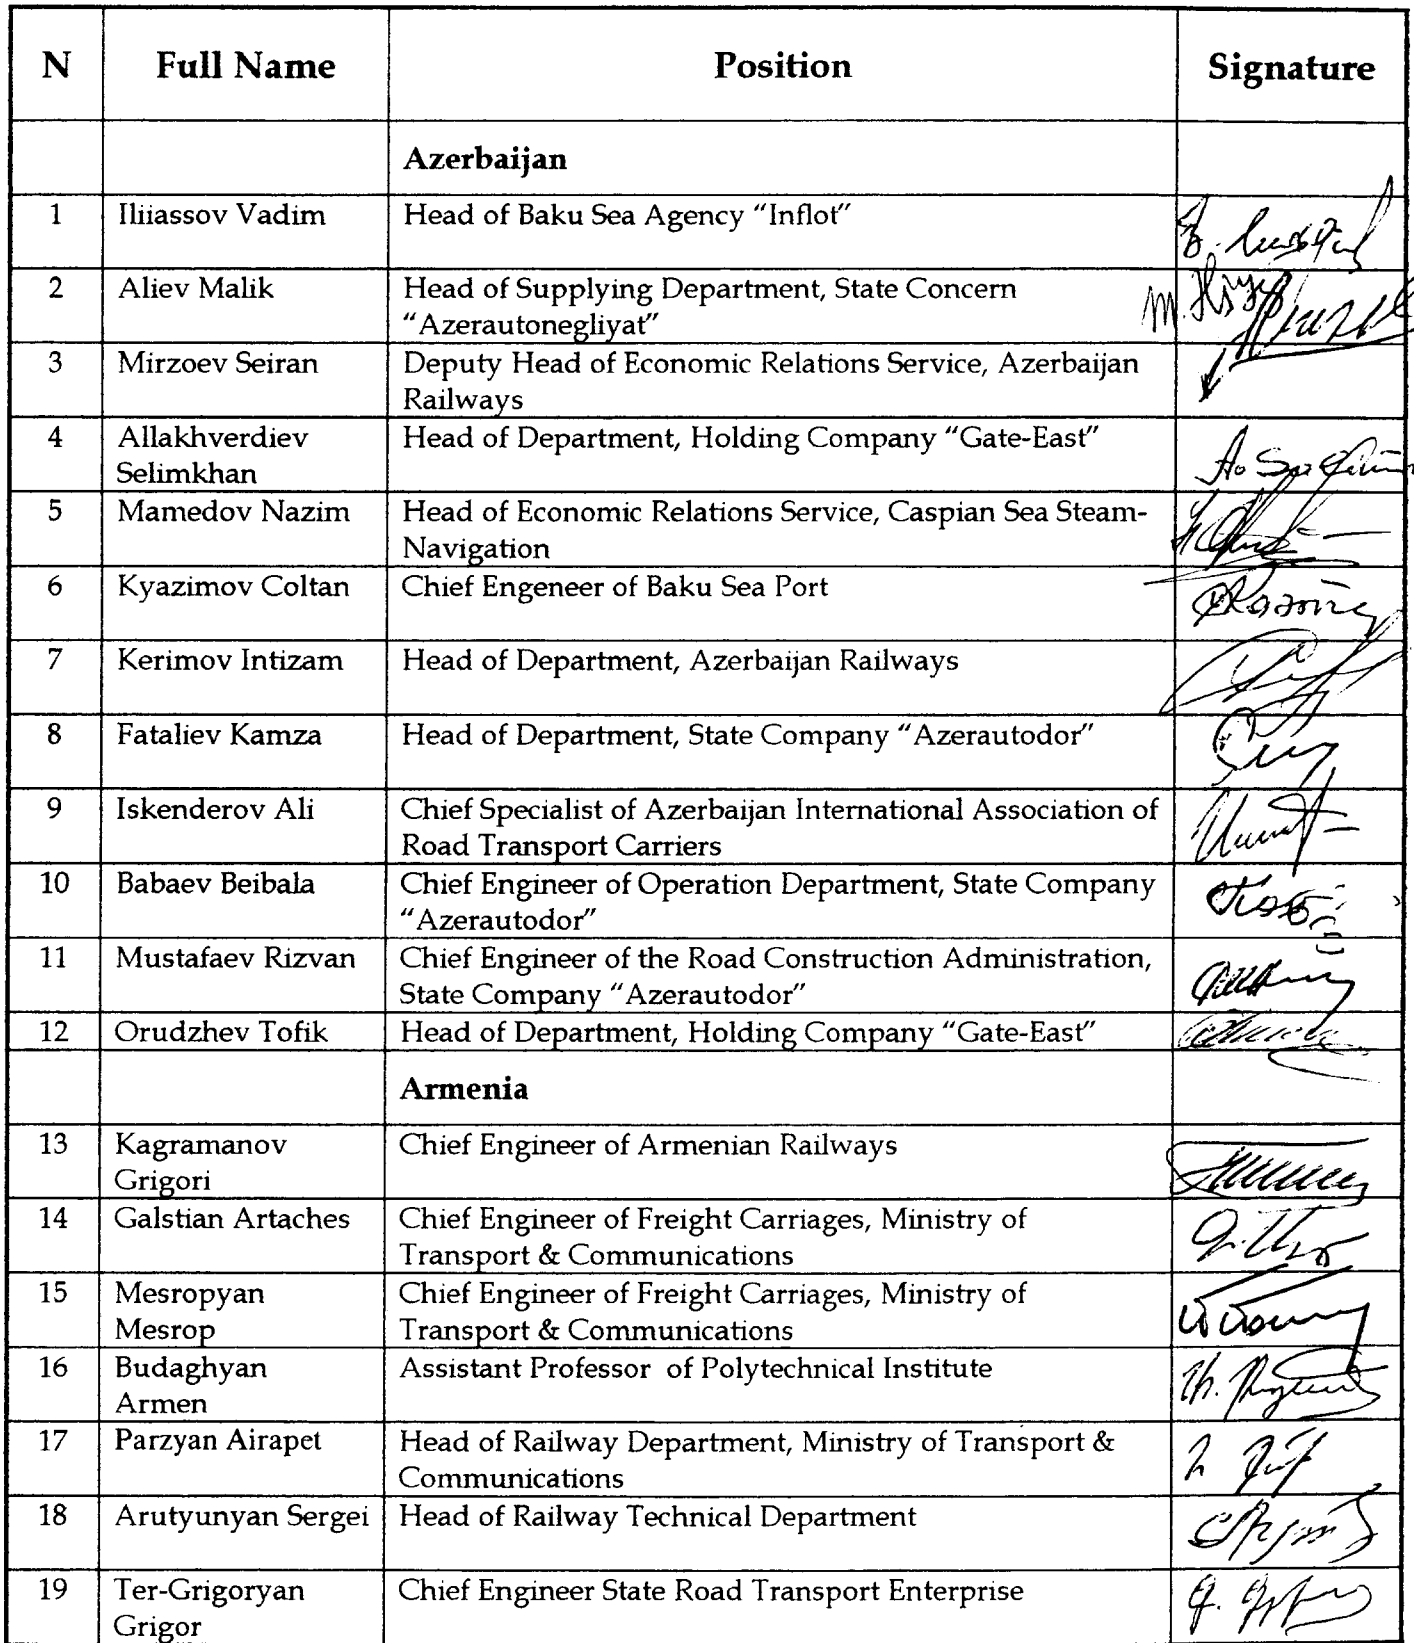 N Full Name Position Signature
Azerbaijan
1 Iliiassov Vadim Head of Baku Sea Agency “Inflot”
2 Aliev Malik Head of Supplying Department, State Concern
“Azerautonegliyat”
3 Mirzoev Seiran Deputy Head of Economic Relations Service, Azerbaijan
Railways
4 Allakhverdiev Head of Department, Holding Company “Gate-East”
Selimkhan
5 Mamedov Nazim Head of Economic Relations Service, Caspian Sea Steam-
Navigation
6 Kyazimov Coltan Chief Engeneer of Baku Sea Port
7 Kerimov Intizam Head of Department, Azerbaijan Railways
8 Fataliev Kamza Head of Department, State Company “Azerautodor”
9 Iskenderov Ali Chief Specialist of Azerbaijan International Association of
Road Transport Carriers
10 Babaev Beibala Chief Engineer of Operation Department, State Company
“Azerautodor”
11 Mustafaev Rizvan Chief Engineer of the Road Construction Administration,
State Company “Azerautodor”
12 Orudzhev Tofik Head of Department, Holding Company “Gate-East”
Armenia
13 Kagramanov Chief Engineer of Armenian Railways
Grigori
14 Galstian Artaches Chief Engineer of Freight Carriages, Ministry of
Transport & Communications
15 Mesropyan Chief Engineer of Freight Carriages, Ministry of
Mesrop Transport & Communications
16 Budaghyan Assistant Professor of Polytechnical Institute
Armen
17 Parzyan Airapet Head of Railway Department, Ministry of Transport &
Communications
18 Arutyunyan Sergei Head of Railway Technical Department
19 Ter-Grigoryan Chief Engineer State Road Transport Enterprise
Grigor